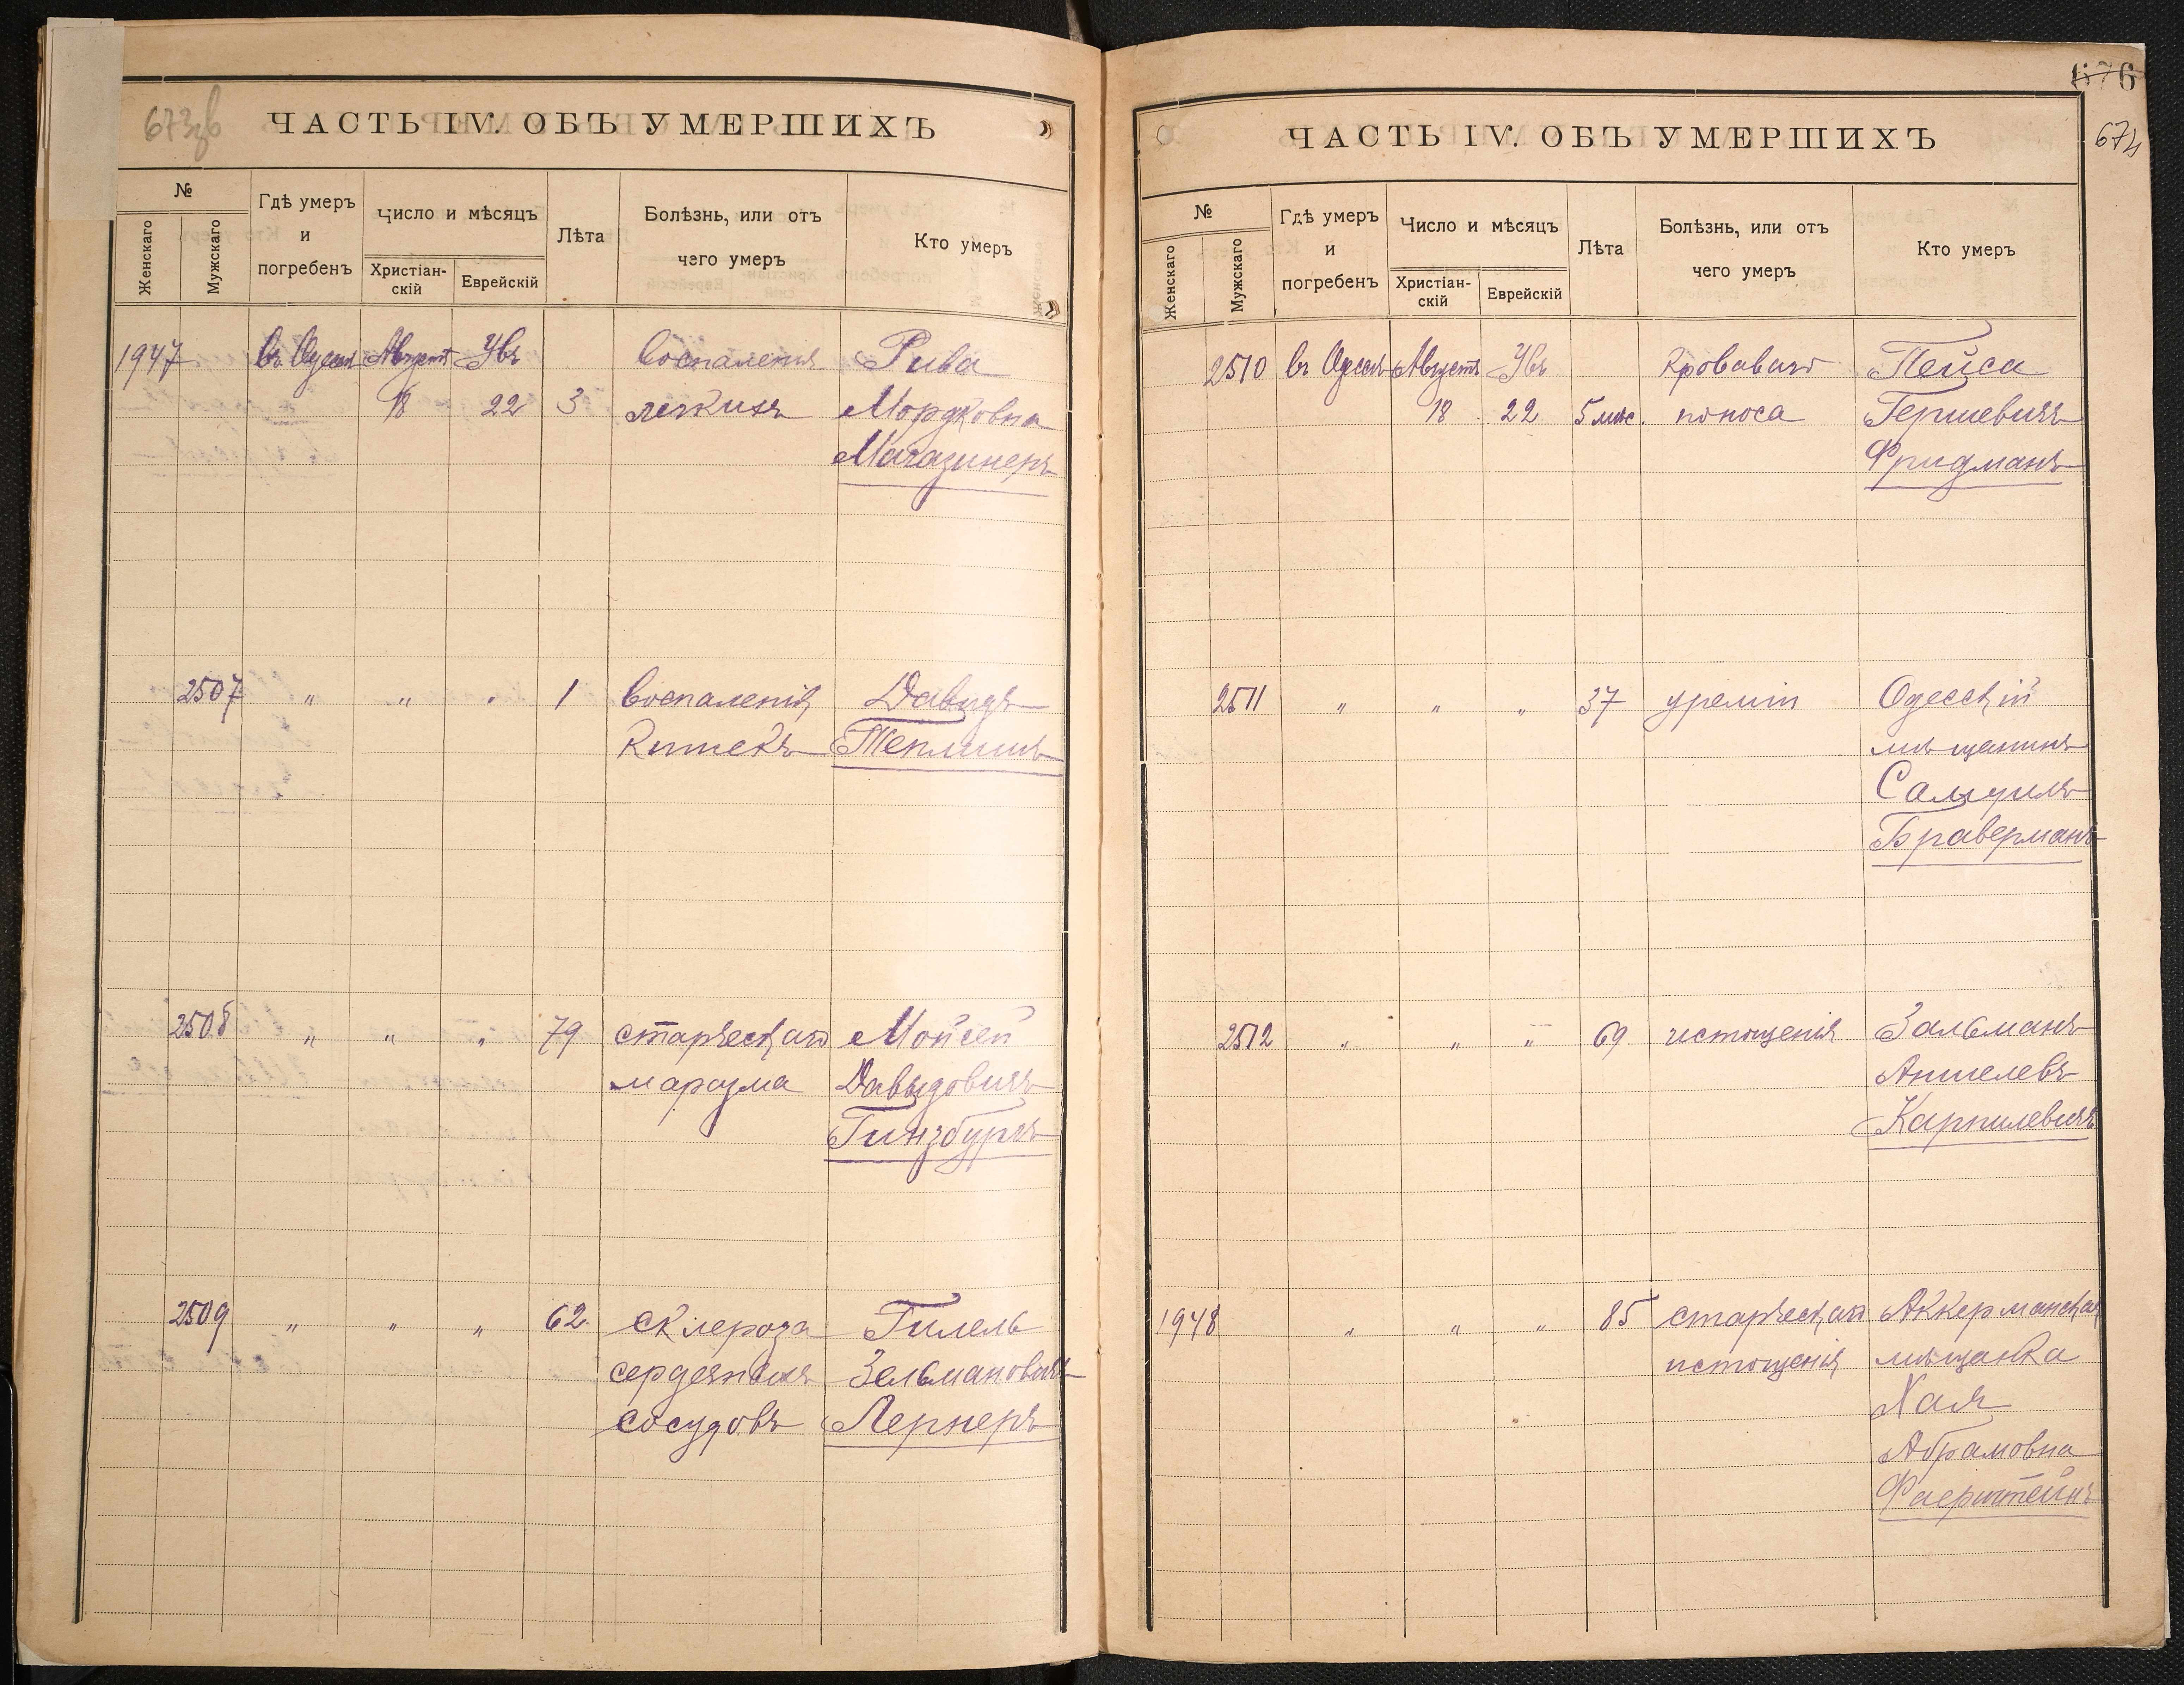 673зв
ЧАСТЬ IV. ОБЪ УМЕРШИХЪ
№
Женскаго
Мужскаго
Гдѣ умеръ
и
погребенъ
Число и мѣсяцъ
Христіан-
скій
Еврейскій
Лѣта
Болѣзнь, или отъ
чего умеръ
Кто умеръ
1947 въ Одессѣ Августъ Увъ воспаленія Рива
18 22 3 легкихъ Мордковна
Магазинеръ
2507 " " " 1 воспаленія Давидъ
кишекъ Теплишъ
2508 " " " 79 старческаго Мойсей
маразма Давыдовичъ
Гинзбургъ
2509 " " " 62 склероза Гилель
сердечныхъ Зельмановичъ
сосудовъ Лернеръ
676
674
ЧАСТЬ IV. ОБЪ УМЕРШИХЪ
№
Женскаго
Мужскаго
Гдѣ умеръ
и
погребенъ
Число и мѣсяцъ
Христіан-
скій
Еврейскій
Лѣта
Болѣзнь, или отъ
чего умеръ
Кто умеръ
2510 въ Одессѣ Августъ Увъ Кроваваго Пейса
18 22 5 мѣс. поноса Гершевичъ
Фридманъ
2511 " " " 37 уреміи Одесскій
мѣщанинъ
Самуилъ
Браверманъ
2512 " " " 69 истощенія Зальманъ
Аншелевъ
Карпилевичъ
1948 " " " 85 старческаго Аккерманская
истощенія мѣщанка
Хая
Абрамовна
Фаерштейнъ